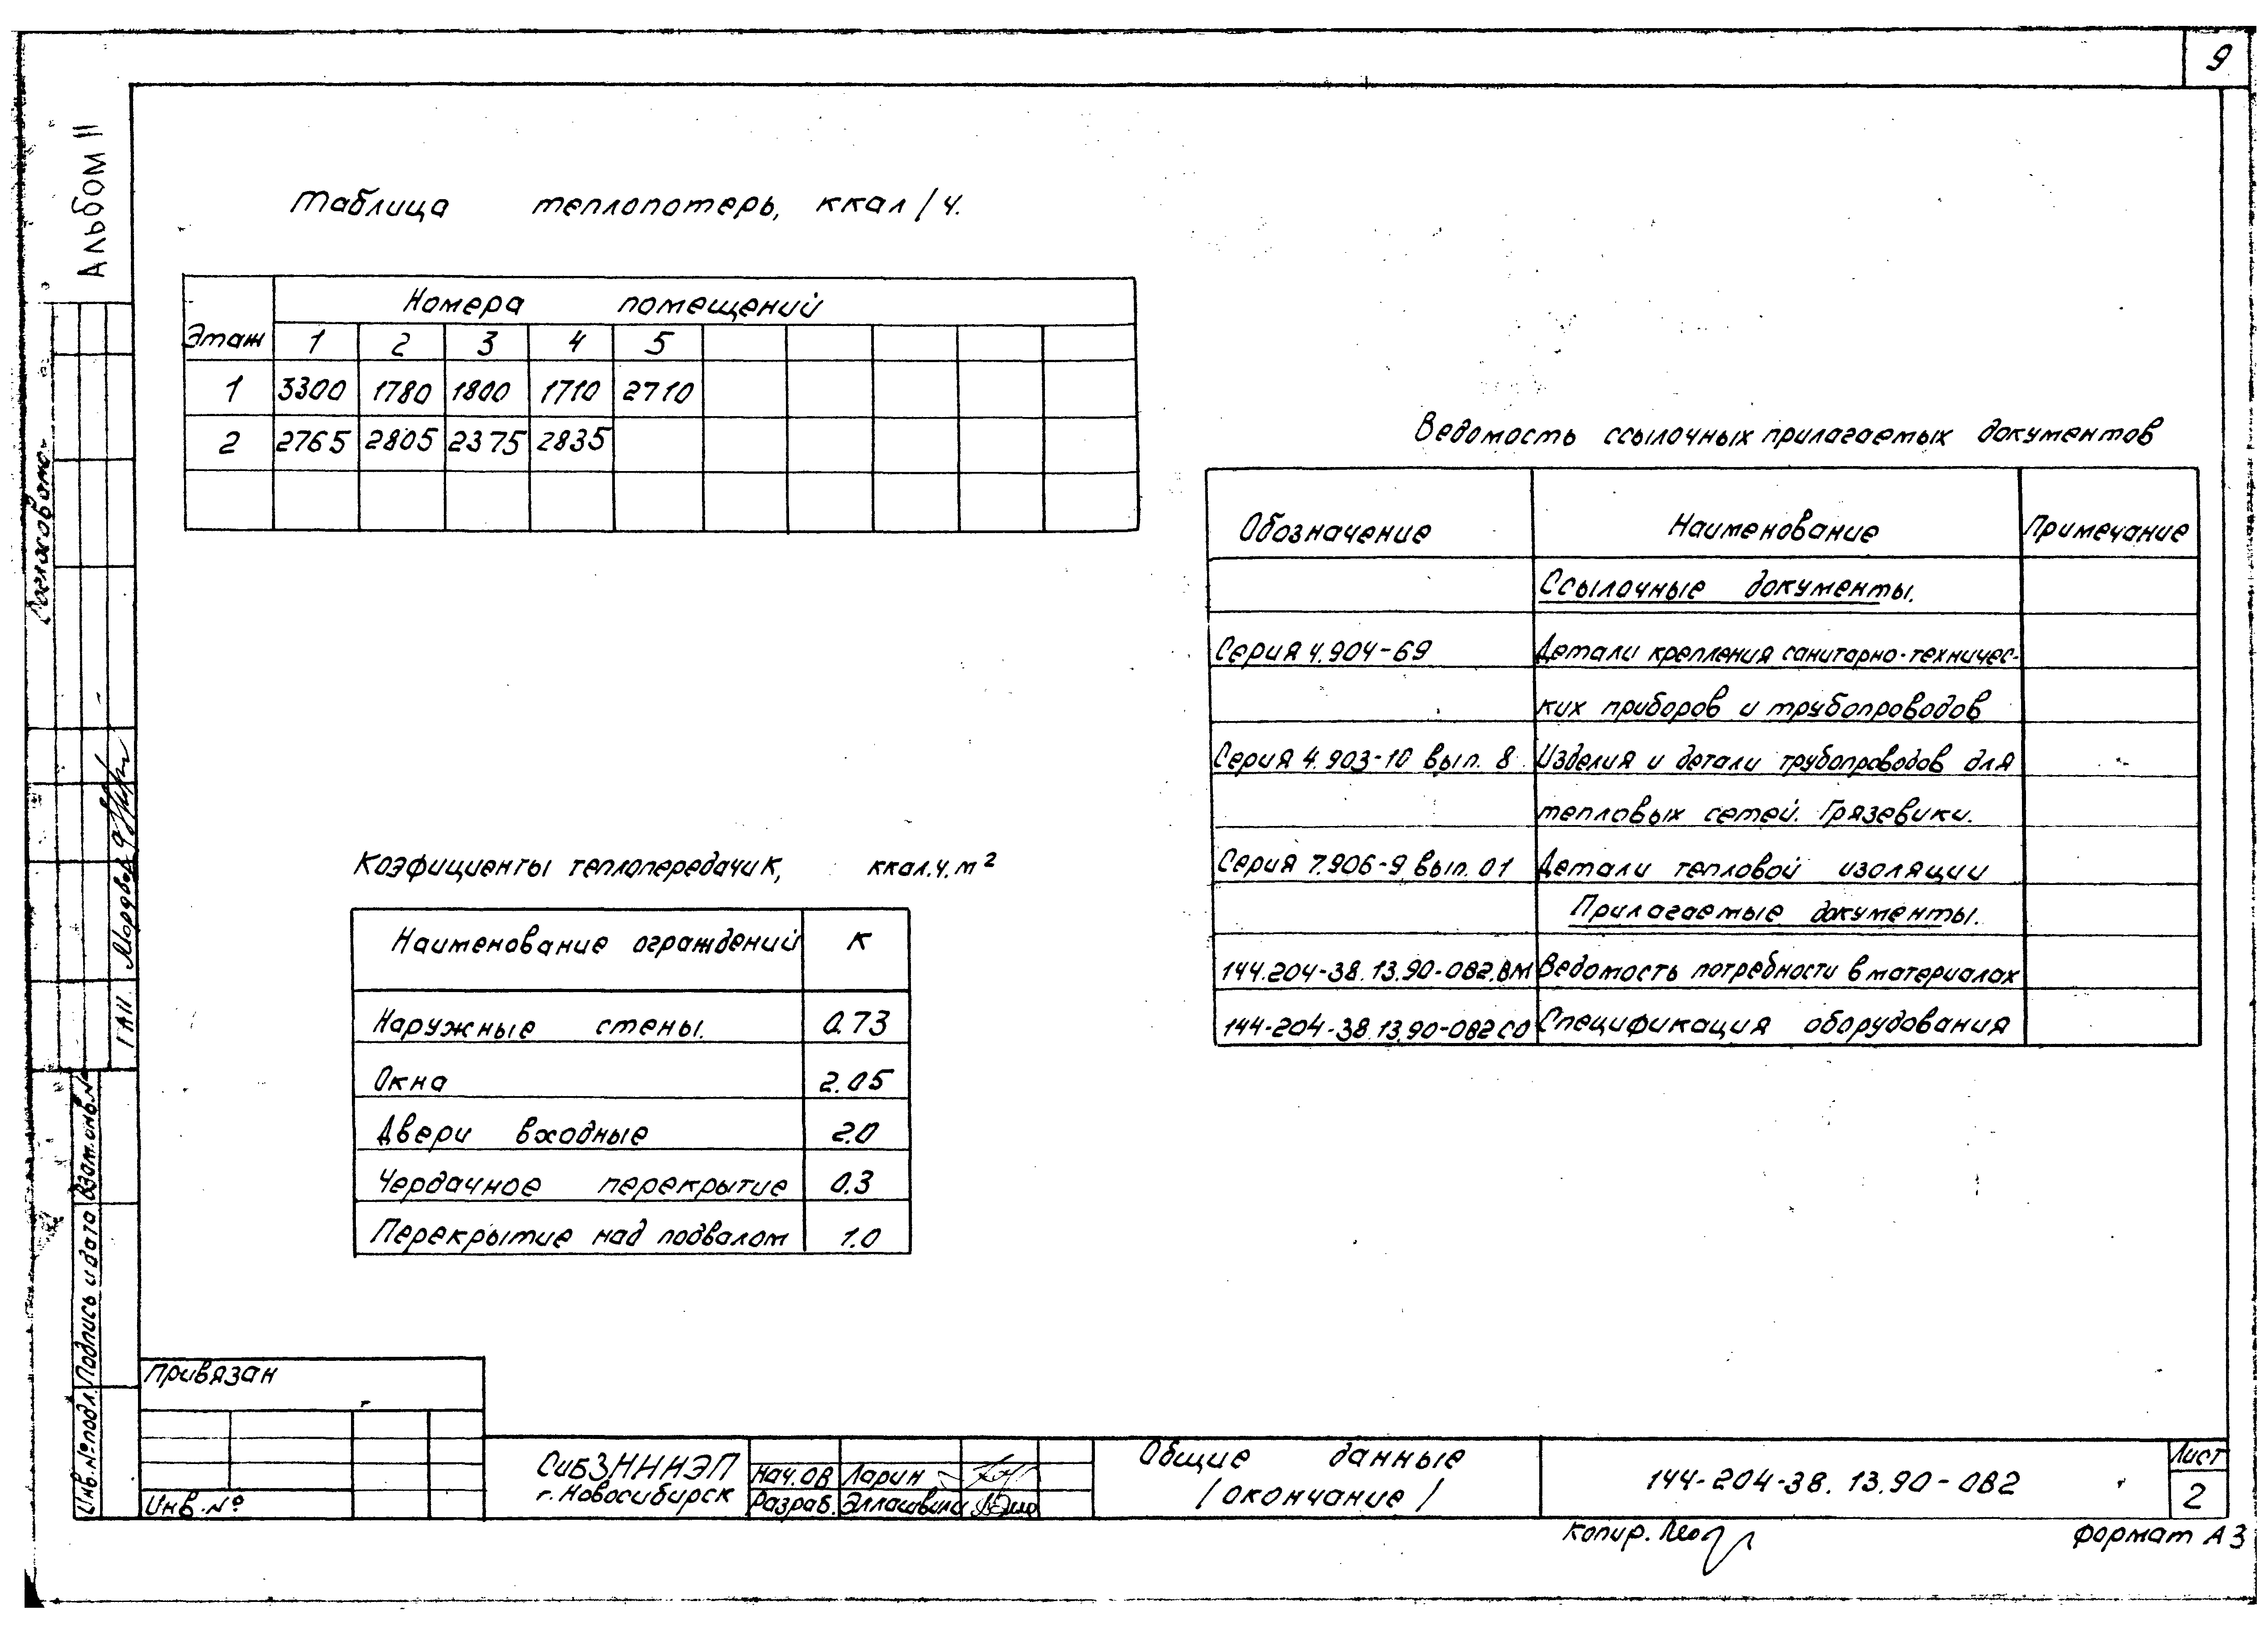 9
Альбом II
Таблица теплопотерь, ккал/ч.
Этаж Номера помещений
1 2 3 4 5
1 3300 1780 1800 1710 2710
2 2765 2805 2375 2835
Ведомость ссылочных прилагаемых документов
Обозначение Наименование Примечание
Ссылочные документы.
Серия 4.904-69 Детали крепления санитарно-техничес-
ких приборов и трубопроводов
Серия 4.903-10 вып. 8 Изделия и детали трубопроводов для
тепловых сетей. Грязевики.
Серия 7.906-9 вып. 01 Детали тепловой изоляции
Прилагаемые документы.
144.204-38.13.90-ОВ2.ВМ Ведомость потребности в материалах
144-204-38.13.90-ОВ2СО Спецификация оборудования
Коэфициенты теплопередачи К, ккал.ч.м²
Наименование ограждений К
Наружные стены. 0.73
Окна 2.05
Двери входные 2.0
Чердачное перекрытие 0.3
Перекрытие над подвалом 1.0
Согласовано
ГАП
Взам.инв.№
Подпись и дата
Инв.№подл.
Привязан
Инв.№
СибЗНИИЭП
г.Новосибирск
Нач.ОВ Ларин
Разраб. Эллашвили
Общие данные
/окончание/
144-204-38.13.90-ОВ2
Лист
2
копир.
формат А3